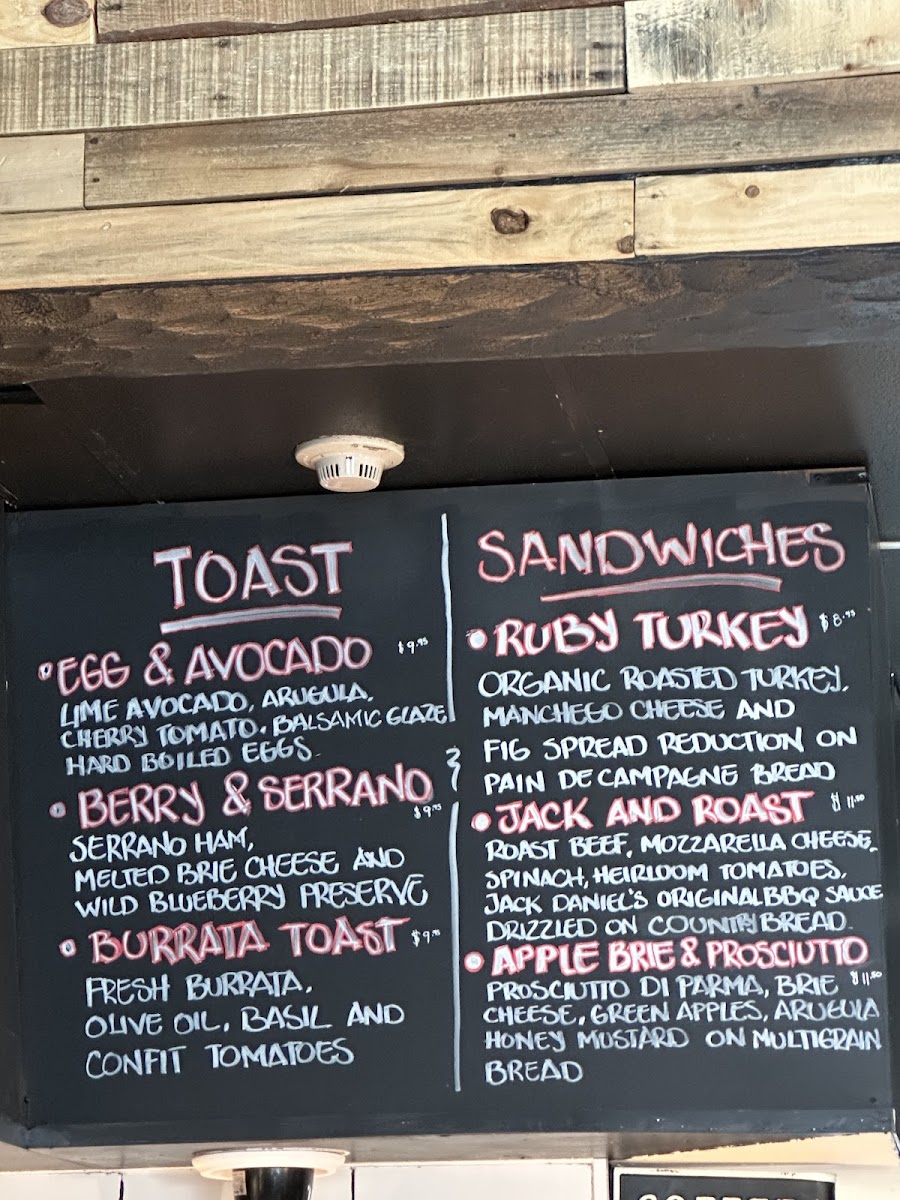 TOAST
EGG & AVOCADO $9.95
LIME AVOCADO, ARUGULA,
CHERRY TOMATO, BALSAMIC GLAZE
HARD BOILED EGGS.
BERRY & SERRANO
$9.95
SERRANO HAM,
MELTED BRIE CHEESE AND
WILD BLUEBERRY PRESERVE
BURRATA TOAST $9.95
FRESH BURRATA,
OLIVE OIL, BASIL AND
CONFIT TOMATOES
SANDWICHES
RUBY TURKEY $8.95
ORGANIC ROASTED TURKEY,
MANCHEGO CHEESE AND
FIG SPREAD REDUCTION ON
PAIN DE CAMPAGNE BREAD
JACK AND ROAST $11.50
ROAST BEEF, MOZZARELLA CHEESE,
SPINACH, HEIRLOOM TOMATOES,
JACK DANIEL'S ORIGINAL BBQ SAUCE
DRIZZLED ON COUNTRY BREAD.
APPLE BRIE & PROSCIUTTO
PROSCIUTTO DI PARMA, BRIE $11.50
CHEESE, GREEN APPLES, ARUGULA
HONEY MUSTARD ON MULTIGRAIN
BREAD